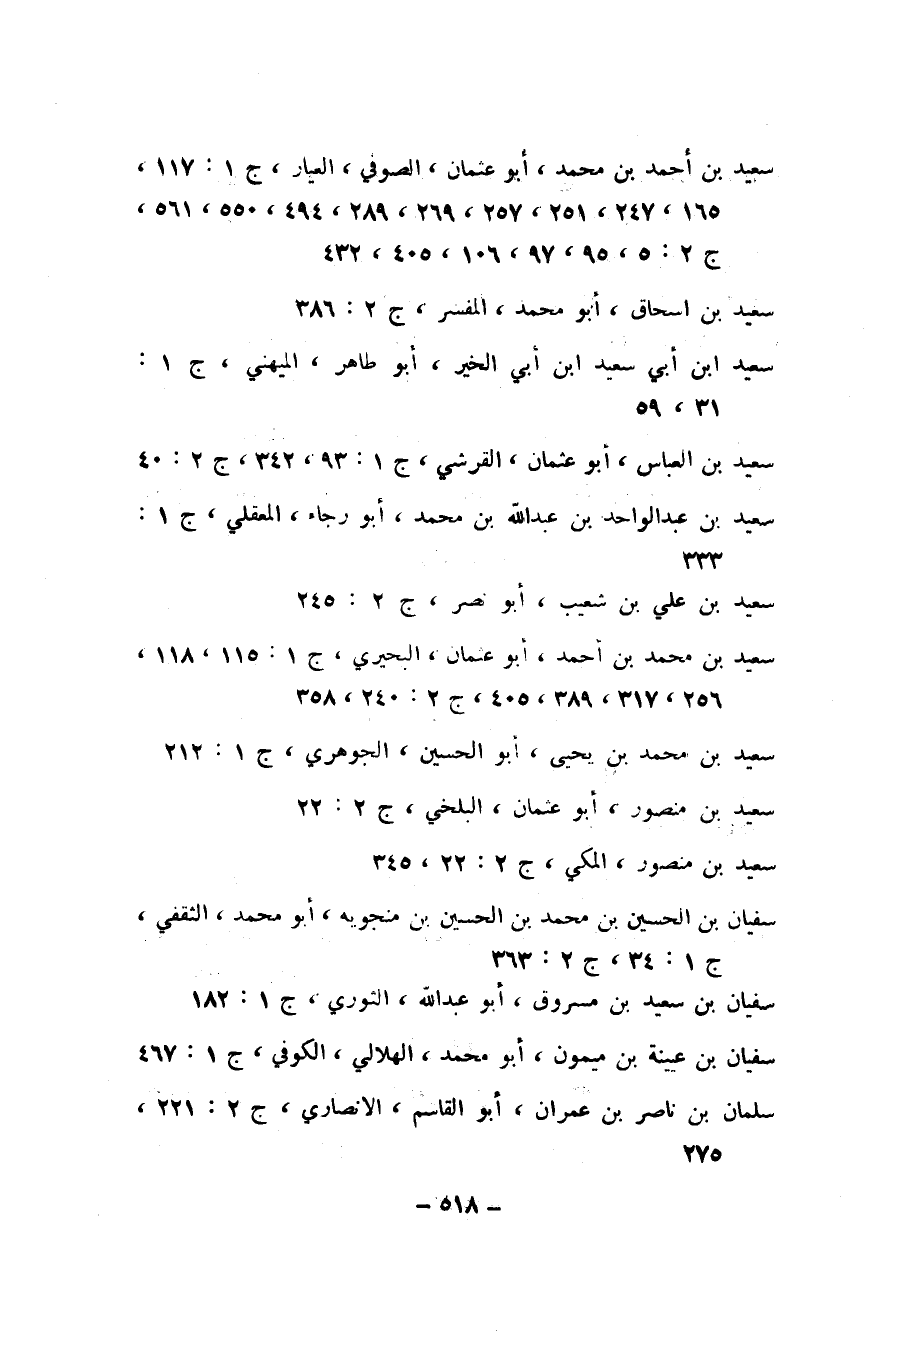 سعيد بن أحمد بن محمد ، أبو عثمان ، الصوفي ، العيار ، ج ١ : ١١٧ ،
١٦٥ ، ٢٤٧ ، ٢٥١ ، ٢٥٧ ، ٢٦٩ ، ٢٨٩ ، ٤٩٤ ، ٥٥٠ ، ٥٦١ ،
ج ٢ : ٥ ، ٩٥ ، ٩٧ ، ١٠٦ ، ٤٠٥ ، ٤٣٢
سعيد بن اسحاق ، أبو محمد ، المفسر ، ج ٢ : ٣٨٦
سعيد ابن أبي سعيد ابن أبي الخير ، أبو طاهر ، الميهني ، ج ١ :
٣١ ، ٥٩
سعيد بن العباس ، أبو عثمان ، القرشي ، ج ١ : ٩٣ ، ٣٤٢ ، ج ٢ : ٤٠
سعيد بن عبدالواحد بن عبدالله بن محمد ، أبو رجاء ، المعقلي ، ج ١ :
٣٣٣
سعيد بن علي بن شعيب ، أبو نصر ، ج ٢ : ٢٤٥
سعيد بن محمد بن أحمد ، أبو عثمان ، البحيري ، ج ١ : ١١٥ ، ١١٨ ،
٢٥٦ ، ٣١٧ ، ٣٨٩ ، ٤٠٥ ، ج ٢ : ٢٤٠ ، ٣٥٨
سعيد بن محمد بن يحيى ، أبو الحسين ، الجوهري ، ج ١ : ٢١٢
سعيد بن منصور ، أبو عثمان ، البلخي ، ج ٢ : ٢٢
سعيد بن منصور ، المكي ، ج ٢ : ٢٢ ، ٣٤٥
سفيان بن الحسين بن محمد بن الحسين بن منجويه ، أبو محمد ، الثقفي ،
ج ١ : ٣٤ ، ج ٢ : ٣٦٣
سفيان بن سعيد بن مسروق ، أبو عبدالله ، الثوري ، ج ١ : ١٨٢
سفيان بن عيينة بن ميمون ، أبو محمد ، الهلالي ، الكوفي ، ج ١ : ٤٦٧
سلمان بن ناصر بن عمران ، أبو القاسم ، الانصاري ، ج ٢ : ٢٢١ ،
٢٧٥
– ٥١٨ –